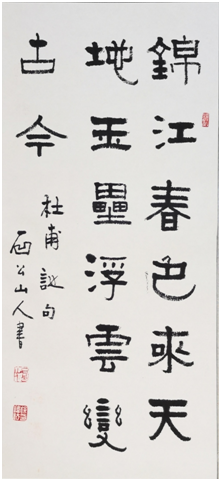 錦江春色來天
地玉壘浮雲變
古今
杜甫詩句
山人書